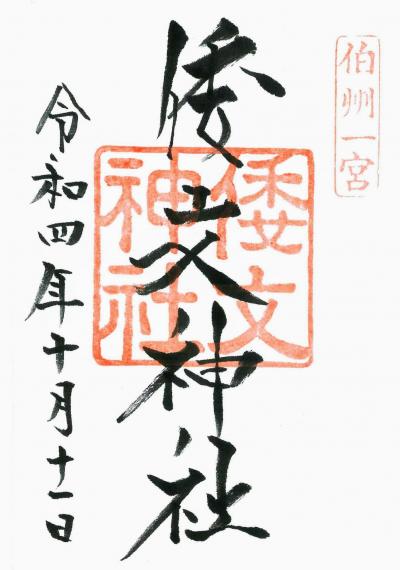 伯州一宮
倭文神社
倭文
神社
令和四年十月十一日